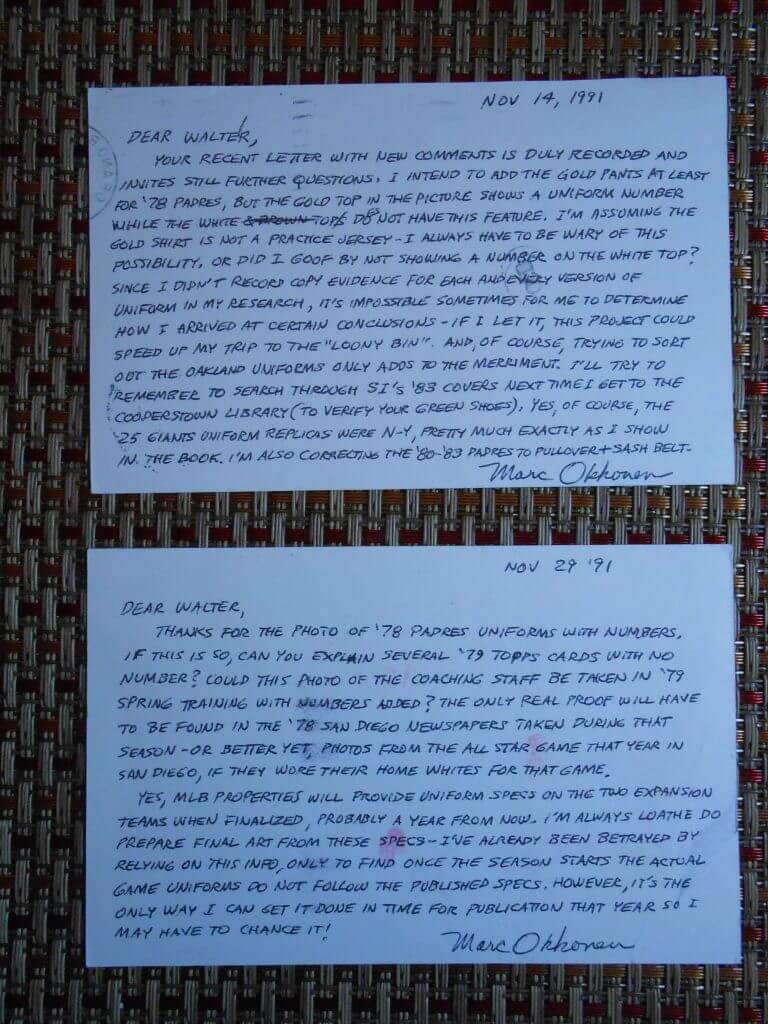 NOV 14, 1991
DEAR WALTER,
YOUR RECENT LETTER WITH NEW COMMENTS IS DULY RECORDED AND
INVITES STILL FURTHER QUESTIONS. I INTEND TO ADD THE GOLD PANTS AT LEAST
FOR '78 PADRES, BUT THE GOLD TOP IN THE PICTURE SHOWS A UNIFORM NUMBER
WHILE THE WHITE & BROWN TOPS DO NOT HAVE THIS FEATURE. I'M ASSUMING THE
GOLD SHIRT IS NOT A PRACTICE JERSEY - I ALWAYS HAVE TO BE WARY OF THIS
POSSIBILITY. OR DID I GOOF BY NOT SHOWING A NUMBER ON THE WHITE TOP?
SINCE I DIDN'T RECORD COPY EVIDENCE FOR EACH AND EVERY VERSION OF
UNIFORM IN MY RESEARCH, IT'S IMPOSSIBLE SOMETIMES FOR ME TO DETERMINE
HOW I ARRIVED AT CERTAIN CONCLUSIONS - IF I LET IT, THIS PROJECT COULD
SPEED UP MY TRIP TO THE "LOONY BIN". AND, OF COURSE, TRYING TO SORT
OUT THE OAKLAND UNIFORMS ONLY ADDS TO THE MERRIMENT. I'LL TRY TO
REMEMBER TO SEARCH THROUGH SI'S '83 COVERS NEXT TIME I GET TO THE
COOPERSTOWN LIBRARY (TO VERIFY YOUR GREEN SHOES). YES, OF COURSE, THE
'25 GIANTS UNIFORM REPLICAS WERE N-Y, PRETTY MUCH EXACTLY AS I SHOW
IN THE BOOK. I'M ALSO CORRECTING THE '80-'83 PADRES TO PULLOVER + SASH BELT-
Marc Okkonen
NOV 29 '91
DEAR WALTER,
THANKS FOR THE PHOTO OF '78 PADRES UNIFORMS WITH NUMBERS.
IF THIS IS SO, CAN YOU EXPLAIN SEVERAL '79 TOPPS CARDS WITH NO
NUMBER? COULD THIS PHOTO OF THE COACHING STAFF BE TAKEN IN '79
SPRING TRAINING WITH NUMBERS ADDED? THE ONLY REAL PROOF WILL HAVE
TO BE FOUND IN THE '78 SAN DIEGO NEWSPAPERS TAKEN DURING THAT
SEASON - OR BETTER YET, PHOTOS FROM THE ALL STAR GAME THAT YEAR IN
SAN DIEGO, IF THEY WORE THEIR HOME WHITES FOR THAT GAME.
YES, MLB PROPERTIES WILL PROVIDE UNIFORM SPECS ON THE TWO EXPANSION
TEAMS WHEN FINALIZED, PROBABLY A YEAR FROM NOW. I'M ALWAYS LOATHE DO
PREPARE FINAL ART FROM THESE SPECS - I'VE ALREADY BEEN BETRAYED BY
RELYING ON THIS INFO, ONLY TO FIND ONCE THE SEASON STARTS THE ACTUAL
GAME UNIFORMS DO NOT FOLLOW THE PUBLISHED SPECS. HOWEVER, IT'S THE
ONLY WAY I CAN GET IT DONE IN TIME FOR PUBLICATION THAT YEAR SO I
MAY HAVE TO CHANCE IT!
Marc Okkonen